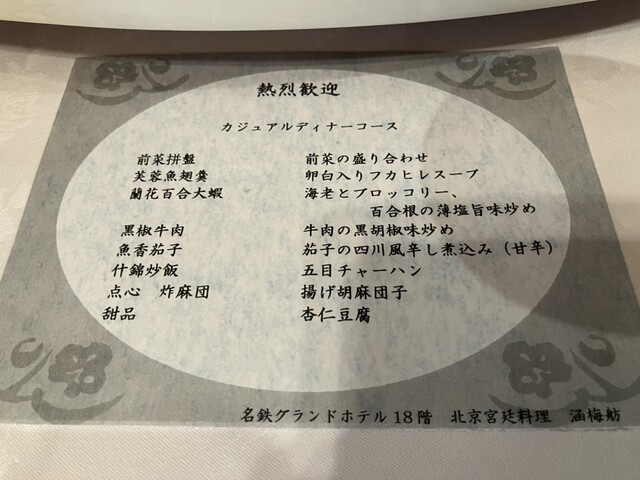 熱烈歓迎
カジュアルディナーコース
前菜拼盤 前菜の盛り合わせ
芙蓉魚翅羹 卵白入りフカヒレスープ
蘭花百合大蝦 海老とブロッコリー、
百合根の薄塩旨味炒め
黒椒牛肉 牛肉の黒胡椒味炒め
魚香茄子 茄子の四川風辛し煮込み（甘辛）
什錦炒飯 五目チャーハン
点心 炸麻団 揚げ胡麻団子
甜品 杏仁豆腐
名鉄グランドホテル18階 北京宮廷料理 涵梅舫